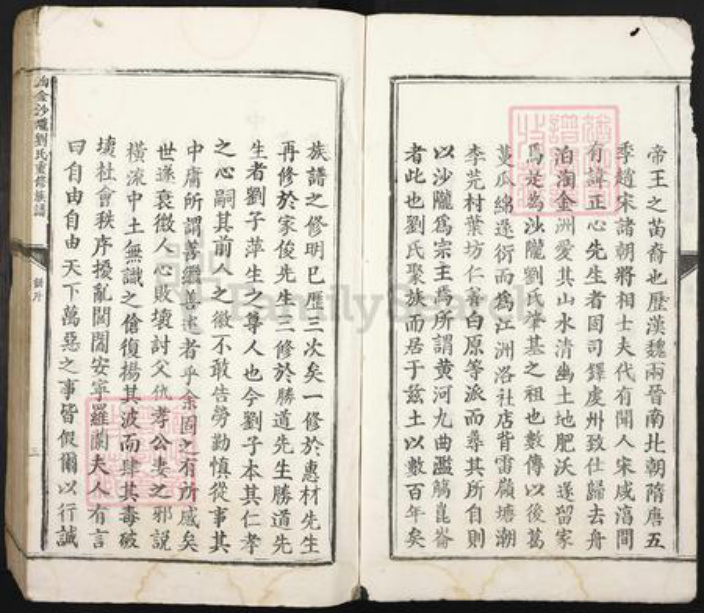 帝王之苗裔也歷漢魏兩晉南北朝隋唐五
季趙宋諸朝將相士夫代有聞人宋咸淳間
有諱正心先生者因司鐸虔州致仕歸去舟
泊淘金洲愛其山水清幽土地肥沃遂留家
焉是為沙隴劉氏肇基之祖也數傳以後葛
蔓瓜綿遂衍而為江洲洛社店背雷嶺塘潮
李芫村葉坊仁善白原等派而尋其所自則
以沙隴為宗主焉所謂黃河九曲濫觴崑崙
者此也劉氏聚族而居于茲土以數百年矣
族譜之修明已歷三次矣一修於惠材先生
再修於家俊先生三修於勝道先生勝道先
生者劉子萍生之尊人也今劉子本其仁孝
之心嗣其前人之徽不敢告勞勤慎從事其
中庸所謂善繼善述者乎余因之有所感矣
世遂衰微人心敗壞討父仇孝公妻之邪說
橫流中土無識之傖復揚其波而肆其毒破
壞社會秩序擾亂閭閻安寧羅蘭夫人有言
曰自由自由天下萬惡之事皆假爾以行誠
金沙隴劉氏重修族譜
三
FamilySearch